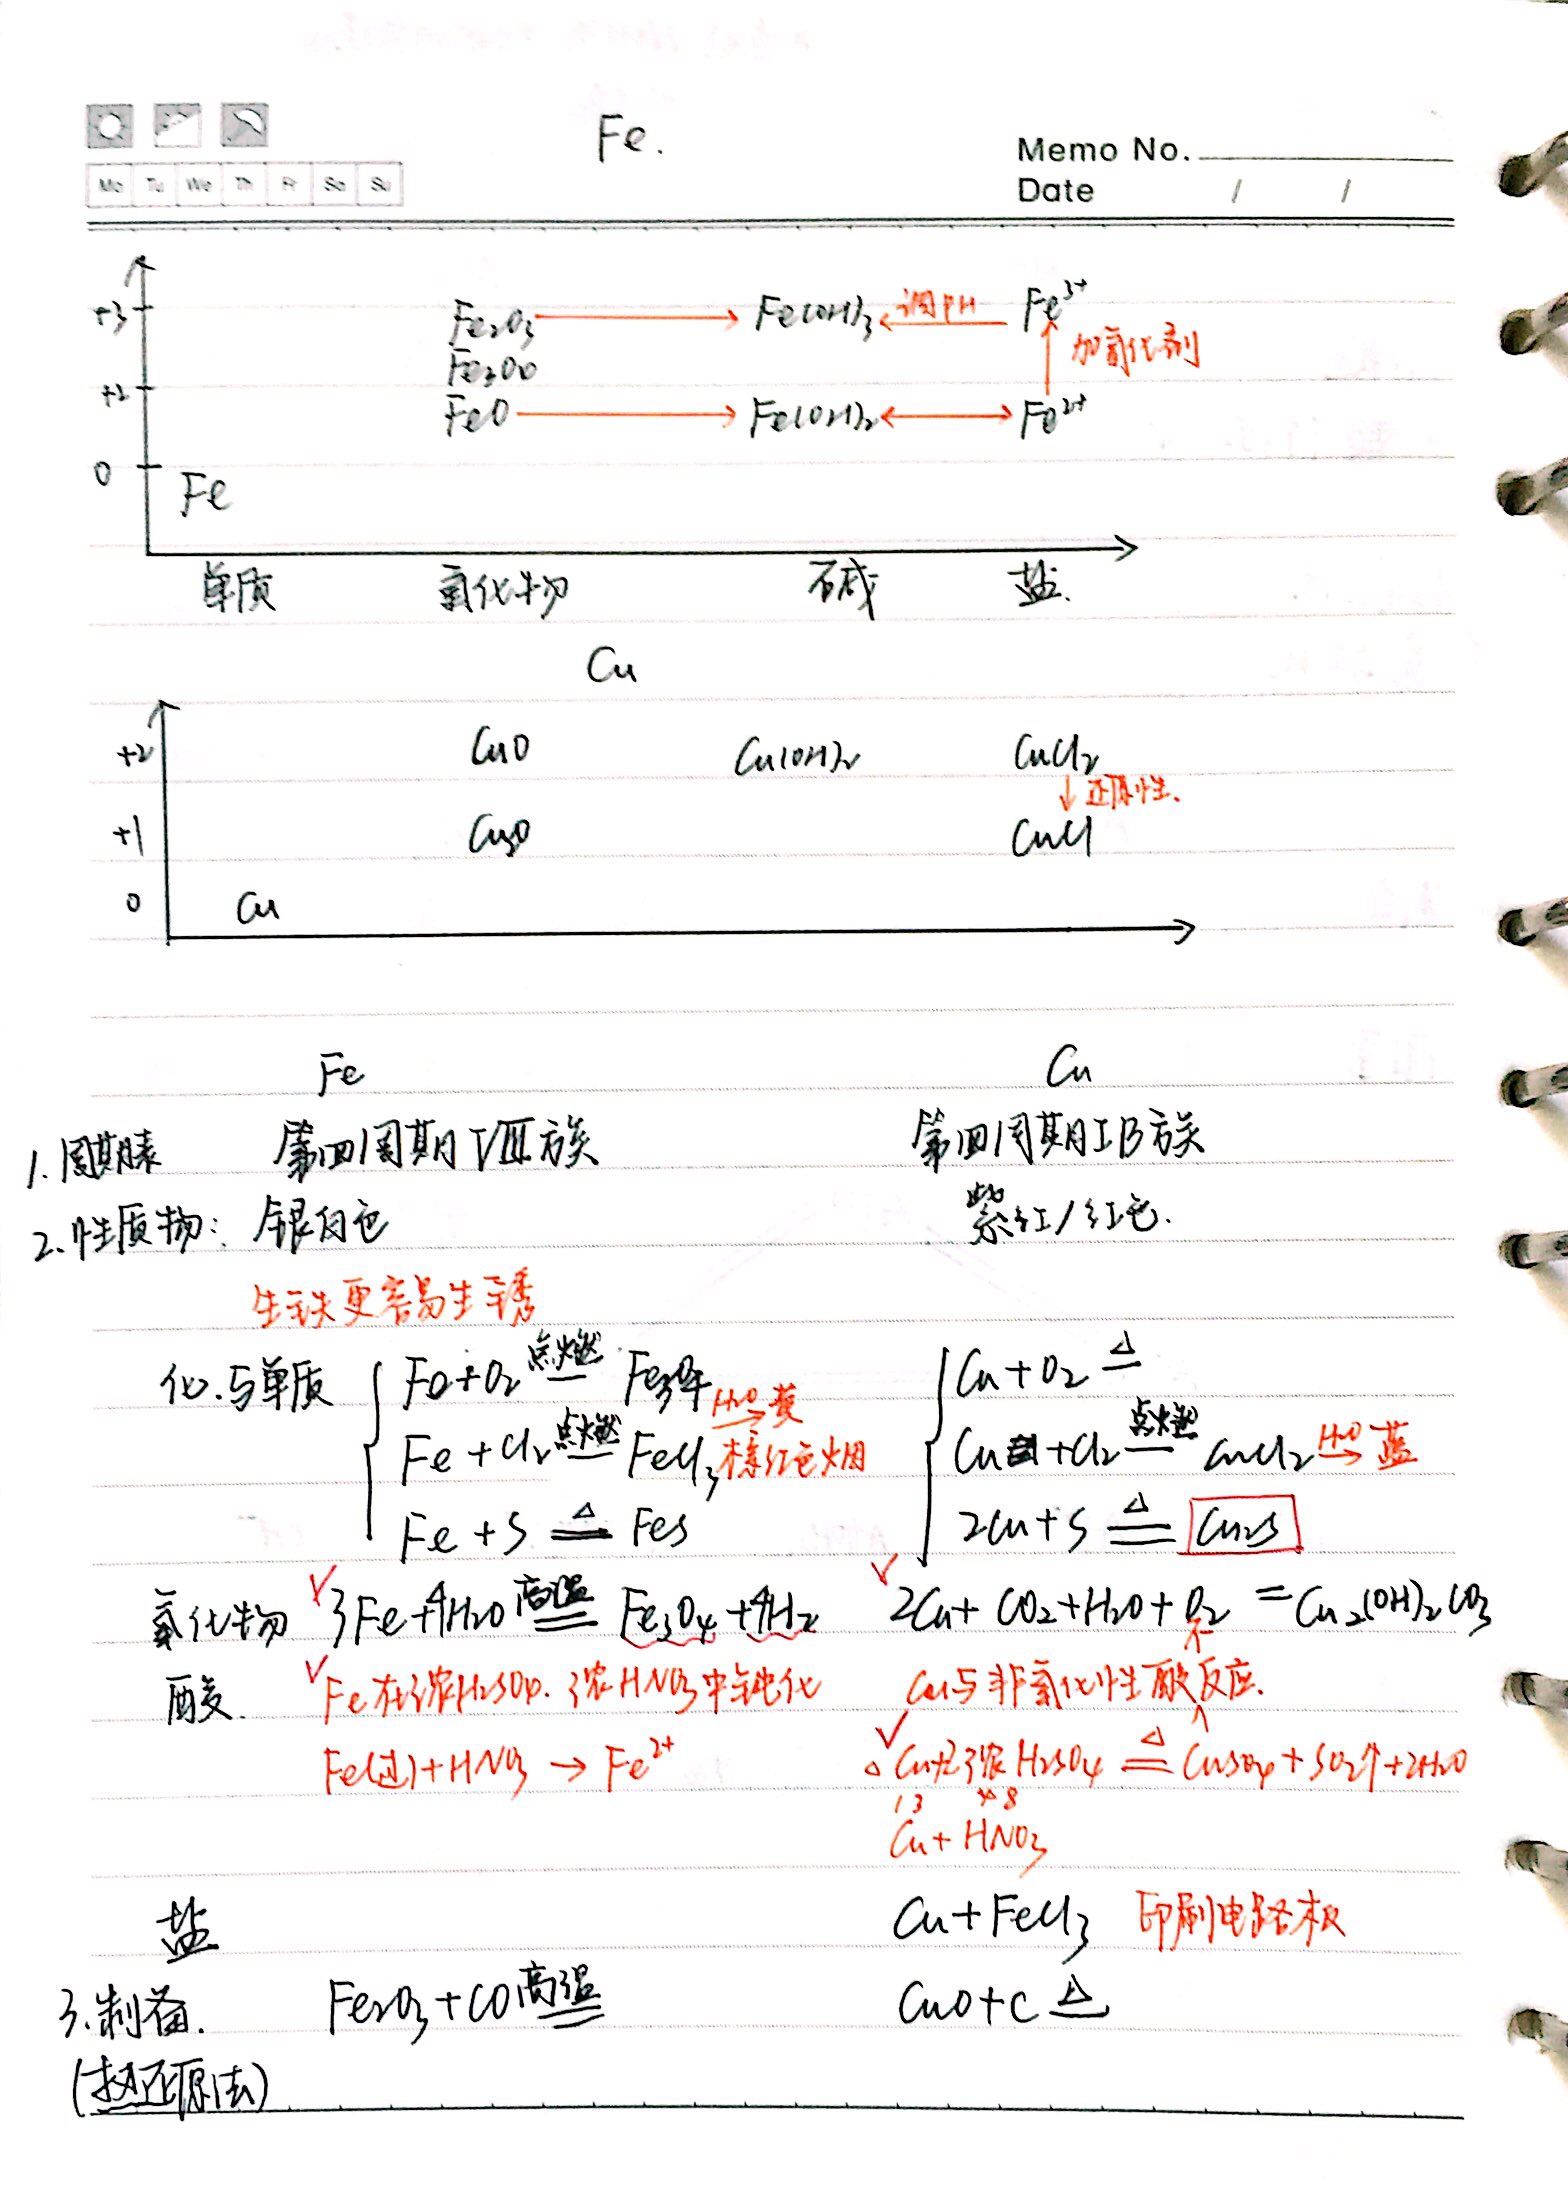 Fe.
Memo No.
Mo Tu We Th Fr Sa Su
Date / /
+3 Fe₂O₃ → Fe(OH)₃ ←调PH Fe³⁺
Fe₃O₄ ↑加氧化剂
+2 FeO → Fe(OH)₂ ↔ Fe²⁺
0 Fe
单质 氧化物 碱 盐.
Cu
+2 CuO Cu(OH)₂ CuCl₂
↓还原性.
+1 Cu₂O CuCl
0 Cu
Fe Cu
1.周期表 第四周期VIII族 第四周期IB族
2.性质物: 银白色 紫红/红色.
生铁更容易生锈
化.与单质 Fe+O₂ 点燃 Fe₃O₄ Cu+O₂ △
H₂O→黄
Fe+Cl₂ 点燃 FeCl₃ 棕红色烟 Cu+Cl₂ 点燃 CuCl₂ H₂O→蓝
Fe+S △ FeS 2Cu+S △ Cu₂S
氧化物 ✓3Fe+4H₂O 高温 Fe₃O₄+4H₂ ✓2Cu+CO₂+H₂O+O₂=Cu₂(OH)₂CO₃
酸. ✓Fe在浓H₂SO₄.浓HNO₃中钝化 Cu与非氧化性酸不反应.
Fe(过)+HNO₃→Fe²⁺ ✓△Cu+2浓H₂SO₄ △ CuSO₄+SO₂↑+2H₂O
1 3 4 8
Cu+HNO₃
盐 Cu+FeCl₃ 印刷电路板
3.制备. Fe₂O₃+CO 高温 CuO+C △
(热还原法)